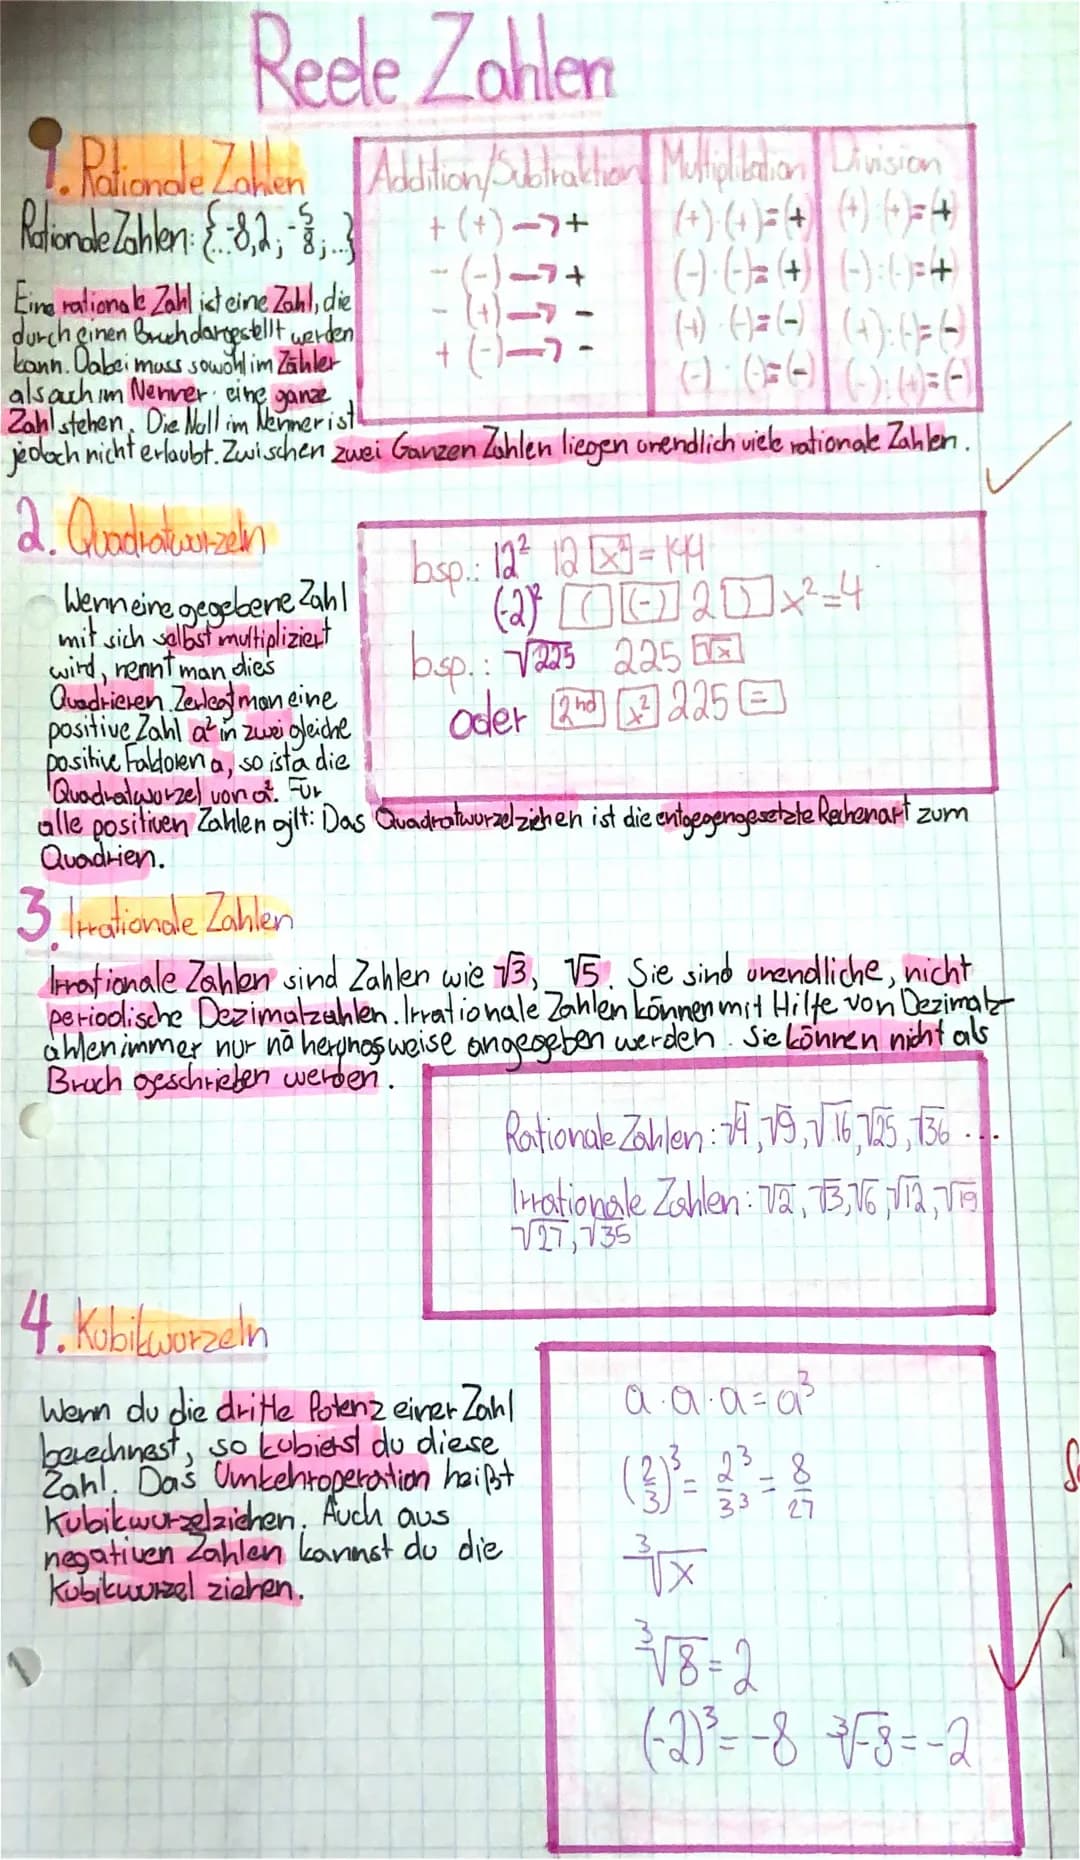 Reele Zahlen
1. Rationale Zahlen
Rationale Zahlen: {...-8,2; -5/8; ...}
Eine rationale Zahl ist eine Zahl, die
durch einen Bruch dargestellt werden
kann. Dabei muss sowohl im Zähler
als auch im Nenner eine ganze
Zahl stehen. Die Null im Nenner ist
jedoch nicht erlaubt. Zwischen zwei Ganzen Zahlen liegen unendlich viele rationale Zahlen.
Addition/Subtraktion Multiplikation Division
+ (+) → + (+)·(+)=(+) (+):(+)=+
- (-) → + (-)·(-)=(+) (-):(-)=+
- (+) → - (+)·(-)=(-) (+):(-)=(-)
+ (-) → - (-)·(-)=(-) (-):(+)=(-)
2. Quadratwurzeln
Wenn eine gegebene Zahl
mit sich selbst multipliziert
wird, nennt man dies
Quadrieren. Zerlegt man eine
positive Zahl a² in zwei gleiche
positive Faktoren a, so ist a die
Quadratwurzel von a². Für
alle positiven Zahlen gilt: Das Quadratwurzelziehen ist die entgegengesetzte Rechenart zum
Quadrien.
bsp.: 12² 12 [x²] = 144
(-2)² [(] [(-)] 2 [)] x² = 4
bsp.: √225 225 [√x]
oder [2nd] [x²] 225 [=]
3. Irrationale Zahlen
Irrationale Zahlen sind Zahlen wie √3, √5. Sie sind unendliche, nicht
periodische Dezimalzahlen. Irrationale Zahlen können mit Hilfe von Dezimalz-
ahlen immer nur näherungsweise angegeben werden. Sie können nicht als
Bruch geschrieben werden.
Rationale Zahlen: √4, √9, √16, √25, √36 ...
Irrationale Zahlen: √2, √3, √6, √12, √19
√27, √35
4. Kubikwurzeln
Wenn du die dritte Potenz einer Zahl
berechnest, so kubierst du diese
Zahl. Das Umkehroperation heißt
Kubikwurzelziehen. Auch aus
negativen Zahlen kannst du die
Kubikwurzel ziehen.
a·a·a=a³
(2/3)³ = 2³/3³ = 8/27
³√x
³√8=2
(-2)³=-8 ³√-8=-2